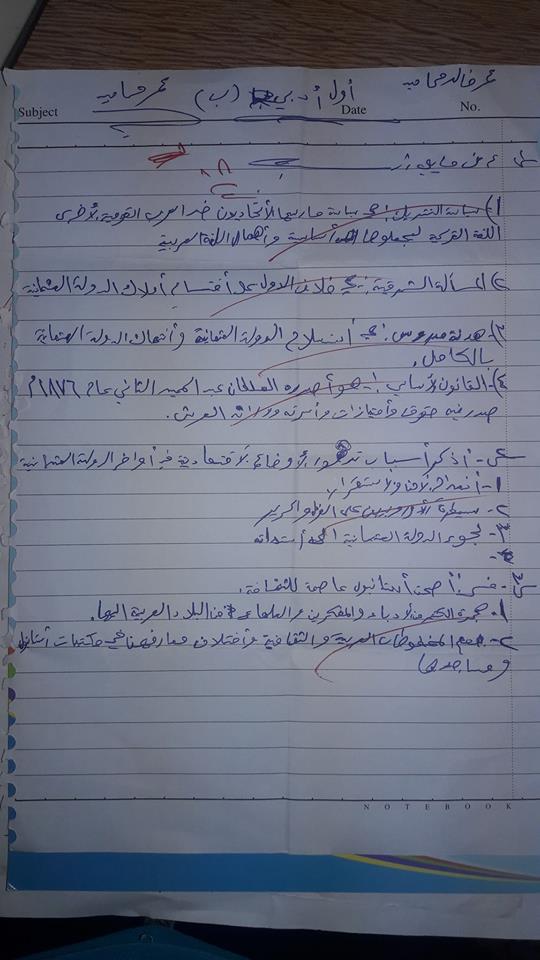 عمر خالد محاميد
أول أدبي (ب)
Subject Date No.
س1 عرف ما يلي :-
1) سياسة التتريك : هي سياسة مارسها الأتحاديون ضد العرب القومية الأخرى
اللغة التركية ليجعلوها أساسية وأهمال اللغة العربية
2) المسألة الشرقية : هي خلاف الدول على أقتسام أملاك الدولة العثمانية
3) هدنة مدروس : هي أستسلام الدولة العثمانية وأنتهاك الدولة العثمانية
بالكامل.
4)- القانون الأساسي :- هو أصدره السلطان عبد الحميد الثاني عام 1876م
صدر فيه حقوق وأمتيازات وأسرته ووراثة العرش.
س2- أذكر أسباب تدهور الأوضاع الأقتصادية في أواخر الدولة العثمانية
1- أنعدام الأمن والأستقرار.
2- سيطرة الأوروبيين على
3- لجوء الدولة العثمانية الى أستدانة
س3- فسر: أصبحت أستانبول عاصمة للثقافة.
1- هجرة الكثير من الأدباء والمفكرين والعلماء من البلاد العربية اليها.
2- جمع المخطوطات العربية والثقافية وأختلاف معارفها في مكتبات أستانبول
ومساجدها
NOTEBOOK